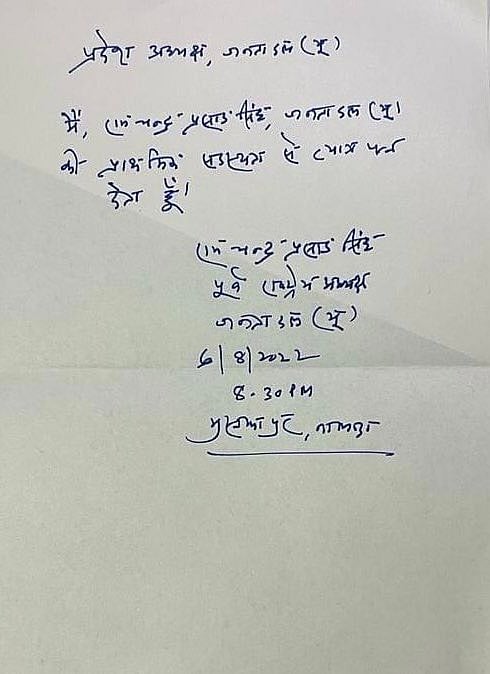 प्रदेश अध्यक्ष, जनता दल (यू)
मैं, राम चन्द्र प्रसाद सिंह, जनता दल (यू)
की प्राथमिक सदस्यता से त्याग पत्र
देता हूँ।
राम चन्द्र प्रसाद सिंह
पूर्व राष्ट्रीय अध्यक्ष
जनता दल (यू)
6/8/2022
8.30 PM
मुस्तफापुर, नालन्दा